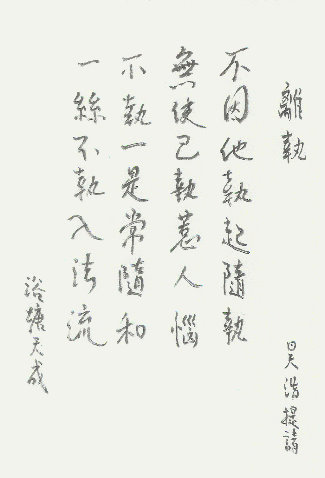 離執
不因他執起隨執
無使己執惹人惱
不執一是常隨和
一絲不執入法流
昊浩提請
浴塘天成